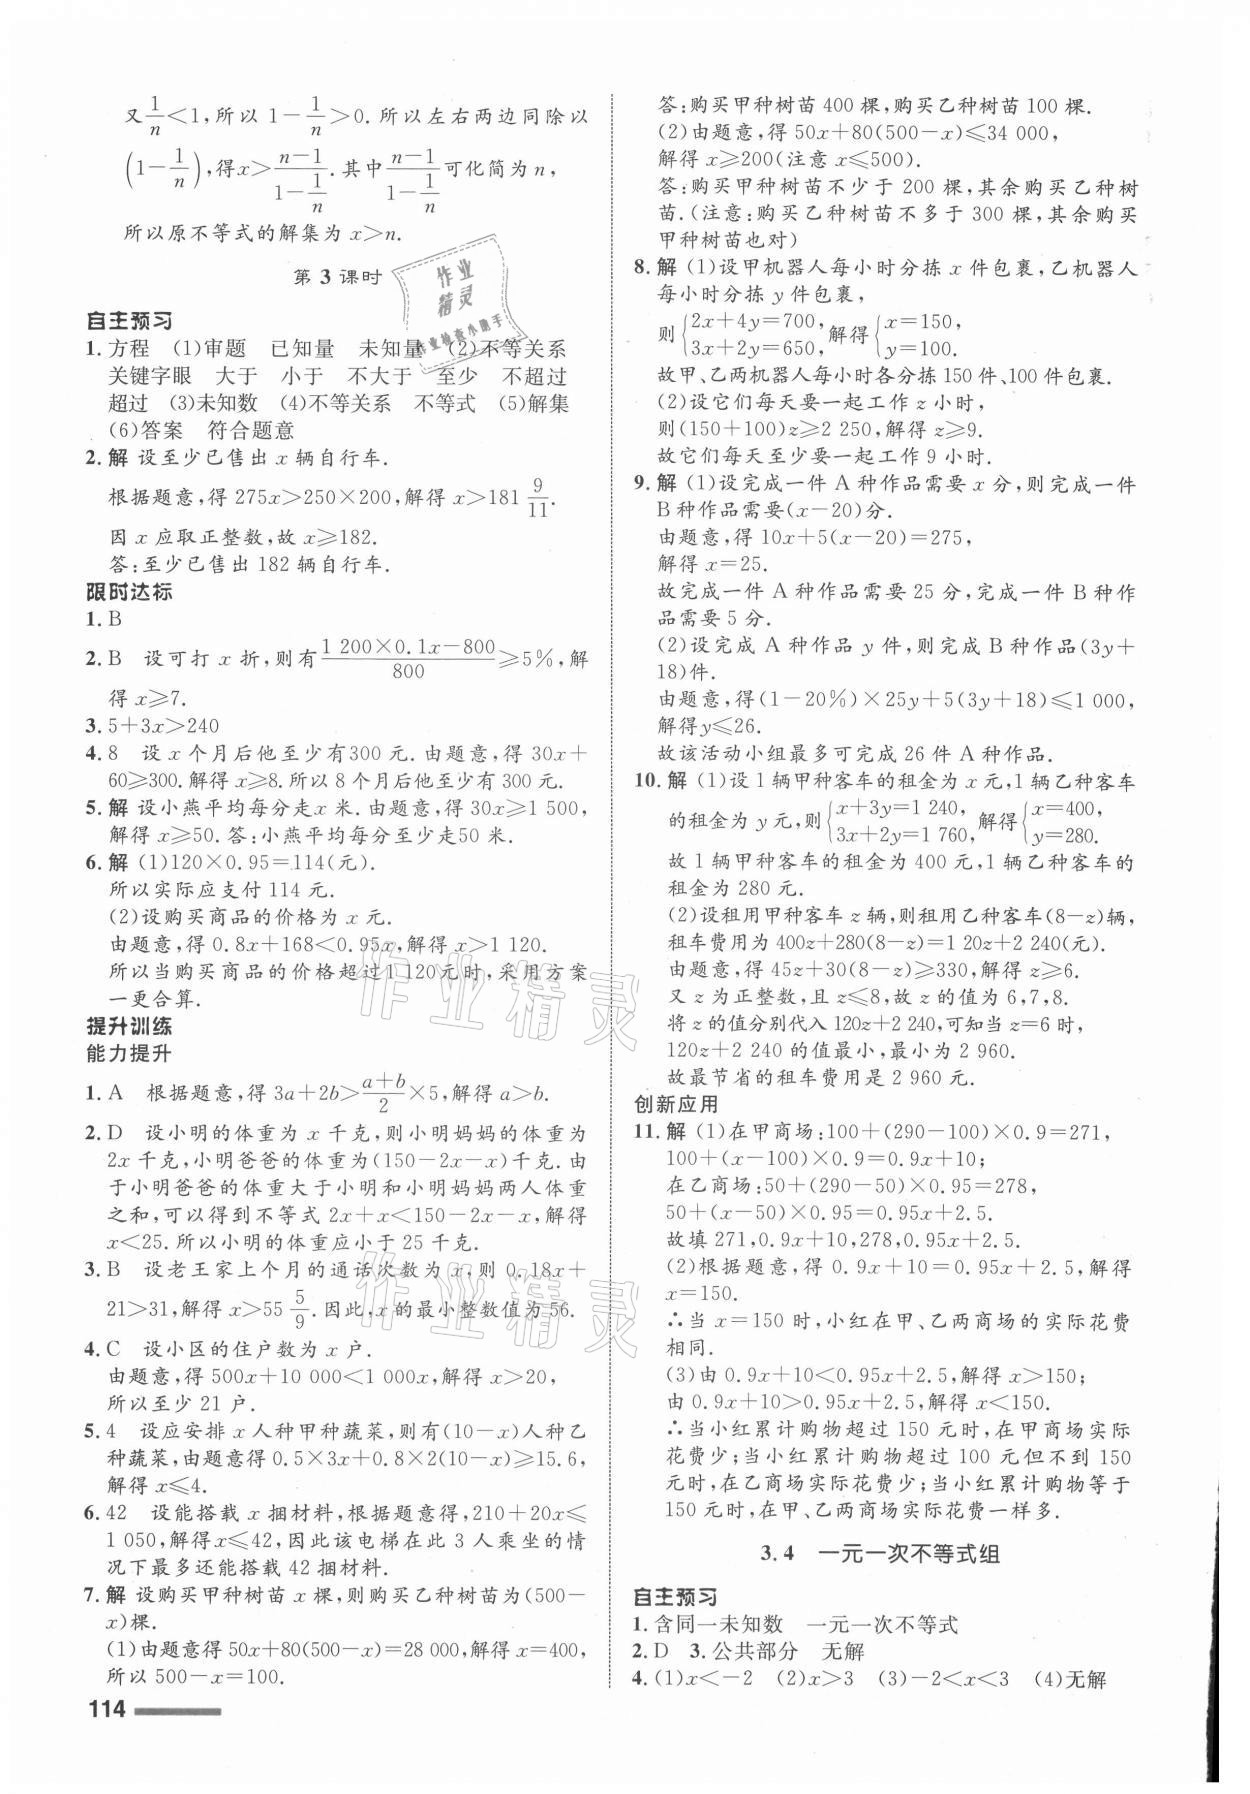 又1/n<1,所以 1-1/n>0.所以左右两边同除以
(1-1/n),得x>(n-1)/(1-1/n).其中(n-1)/(1-1/n)可化简为n,
所以原不等式的解集为 x>n.
第 3 课时
自主预习
1.方程 (1)审题 已知量 未知量 (2)不等关系
关键字眼 大于 小于 不大于 至少 不超过
超过 (3)未知数 (4)不等关系 不等式 (5)解集
(6)答案 符合题意
2.解 设至少已售出 x 辆自行车.
根据题意,得 275x>250×200,解得 x>181 9/11.
因 x 应取正整数,故 x≥182.
答:至少已售出 182 辆自行车.
限时达标
1.B
2.B 设可打 x 折,则有(1 200×0.1x-800)/800≥5%,解
得 x≥7.
3.5+3x>240
4.8 设 x 个月后他至少有300 元.由题意,得 30x+
60≥300.解得 x≥8.所以 8 个月后他至少有 300 元.
5.解 设小燕平均每分走x 米.由题意,得 30x≥1 500,
解得 x≥50.答:小燕平均每分至少走50 米.
6.解 (1)120×0.95=114(元).
所以实际应支付 114 元.
(2)设购买商品的价格为 x 元.
由题意,得 0.8x+168<0.95x,解得 x>1 120.
所以当购买商品的价格超过1 120元时,采用方案
一更合算.
提升训练
能力提升
1.A 根据题意,得 3a+2b>(a+b)/2×5,解得 a>b.
2.D 设小明的体重为 x 千克,则小明妈妈的体重为
2x 千克,小明爸爸的体重为(150-2x-x)千克.由
于小明爸爸的体重大于小明和小明妈妈两人体重
之和,可以得到不等式 2x+x<150-2x-x,解得
x<25.所以小明的体重应小于 25 千克.
3.B 设老王家上个月的通话次数为 x,则 0.18x+
21>31,解得 x>55 5/9.因此,x的最小整数值为 56.
4.C 设小区的住户数为 x 户.
由题意,得 500x+10 000<1 000x,解得 x>20,
所以至少 21 户.
5.4 设应安排 x 人种甲种蔬菜,则有(10-x)人种乙
种蔬菜,由题意得 0.5×3x+0.8×2(10-x)≥15.6,
解得 x≤4.
6.42 设能搭载 x 捆材料,根据题意得,210+20x≤
1 050,解得x≤42,因此该电梯在此 3 人乘坐的情
况下最多还能搭载 42 捆材料.
7.解 设购买甲种树苗 x 棵,则购买乙种树苗为(500-
x)棵.
(1)由题意得 50x+80(500-x)=28 000,解得 x=400,
所以 500-x=100.
114
答:购买甲种树苗 400 棵,购买乙种树苗 100 棵.
(2)由题意,得 50x+80(500-x)≤34 000,
解得 x≥200(注意 x≤500).
答:购买甲种树苗不少于 200 棵,其余购买乙种树
苗.(注意:购买乙种树苗不多于 300 棵,其余购买
甲种树苗也对)
8.解 (1)设甲机器人每小时分拣 x 件包裹,乙机器人
每小时分拣 y 件包裹,
则{2x+4y=700, 3x+2y=650,解得{x=150, y=100.
故甲、乙两机器人每小时各分拣 150 件、100 件包裹.
(2)设它们每天要一起工作 z 小时,
则(150+100)z≥2 250,解得 z≥9.
故它们每天至少要一起工作 9 小时.
9.解 (1)设完成一件 A 种作品需要 x 分,则完成一件
B 种作品需要(x-20)分.
由题意,得 10x+5(x-20)=275,
解得 x=25.
故完成一件 A 种作品需要 25 分,完成一件 B 种作
品需要 5 分.
(2)设完成 A 种作品 y 件,则完成 B 种作品(3y+
18)件.
由题意,得(1-20%)×25y+5(3y+18)≤1 000,
解得y≤26.
故该活动小组最多可完成 26 件 A 种作品.
10.解 (1)设 1 辆甲种客车的租金为 x 元,1 辆乙种客车
的租金为 y 元,则{x+3y=1 240, 3x+2y=1 760,解得{x=400, y=280.
故 1 辆甲种客车的租金为 400 元,1 辆乙种客车的
租金为 280 元.
(2)设租用甲种客车 z 辆,则租用乙种客车(8-z)辆,
租车费用为 400z+280(8-z)=1 20z+2 240(元).
由题意,得 45z+30(8-z)≥330,解得 z≥6.
又 z 为正整数,且 z≤8,故 z 的值为 6,7,8.
将 z 的值分别代入 120z+2 240,可知当 z=6 时,
120z+2 240 的值最小,最小为 2 960.
故最节省的租车费用是 2 960 元.
创新应用
11.解 (1)在甲商场:100+(290-100)×0.9=271,
100+(x-100)×0.9=0.9x+10;
在乙商场:50+(290-50)×0.95=278,
50+(x-50)×0.95=0.95x+2.5.
故填 271,0.9x+10,278,0.95x+2.5.
(2)根据题意,得 0.9x+10=0.95x+2.5,解得
x=150.
∴当 x=150 时,小红在甲、乙两商场的实际花费
相同.
(3)由 0.9x+10<0.95x+2.5,解得 x>150;
由 0.9x+10>0.95x+2.5,解得 x<150.
∴当小红累计购物超过 150 元时,在甲商场实际
花费少;当小红累计购物超过 100 元但不到 150
元时,在乙商场实际花费少;当小红累计购物等于
150 元时,在甲、乙两商场实际花费一样多.
3.4 一元一次不等式组
自主预习
1.含同一未知数 一元一次不等式
2.D 3.公共部分 无解
4.(1)x<-2 (2)x>3 (3)-2<x<3 (4)无解
作业
精灵
作业检查小助手
作业精灵
作业精灵